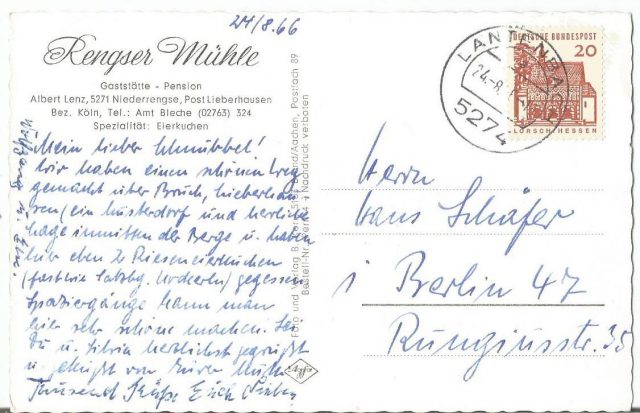 24/8.66
Rengser Mühle
Gaststätte - Pension
Albert Lenz, 5271 Niederrengse, Post Lieberhausen
Bez. Köln, Tel.: Amt Bleche (02763) 324
Spezialität: Eierkuchen
Mein lieber Schnubbel!
Wir haben einen schönen Weg
gemacht über Bruch, Lieberhau-
sen (ein Musterdorf und herrliche
Lage inmitten der Berge u. haben
hier eben 2 Rieseneierkuchen
(fast wie Salzbg. Nockerln) gegessen
Spaziergänge kann man
hier sehr schöne machen. Sei
Du u. Silvia herzlichst gegrüßt
u. geküßt von Eurer
Tausend Küße Euch Lieben
Foto und Verlag
Nachdruck verboten
Agfa
DEUTSCHE BUNDESPOST
20
LORSCH/HESSEN
5274
Herrn
Hans Schäfer
1 Berlin 47
Rungiusstr. 35